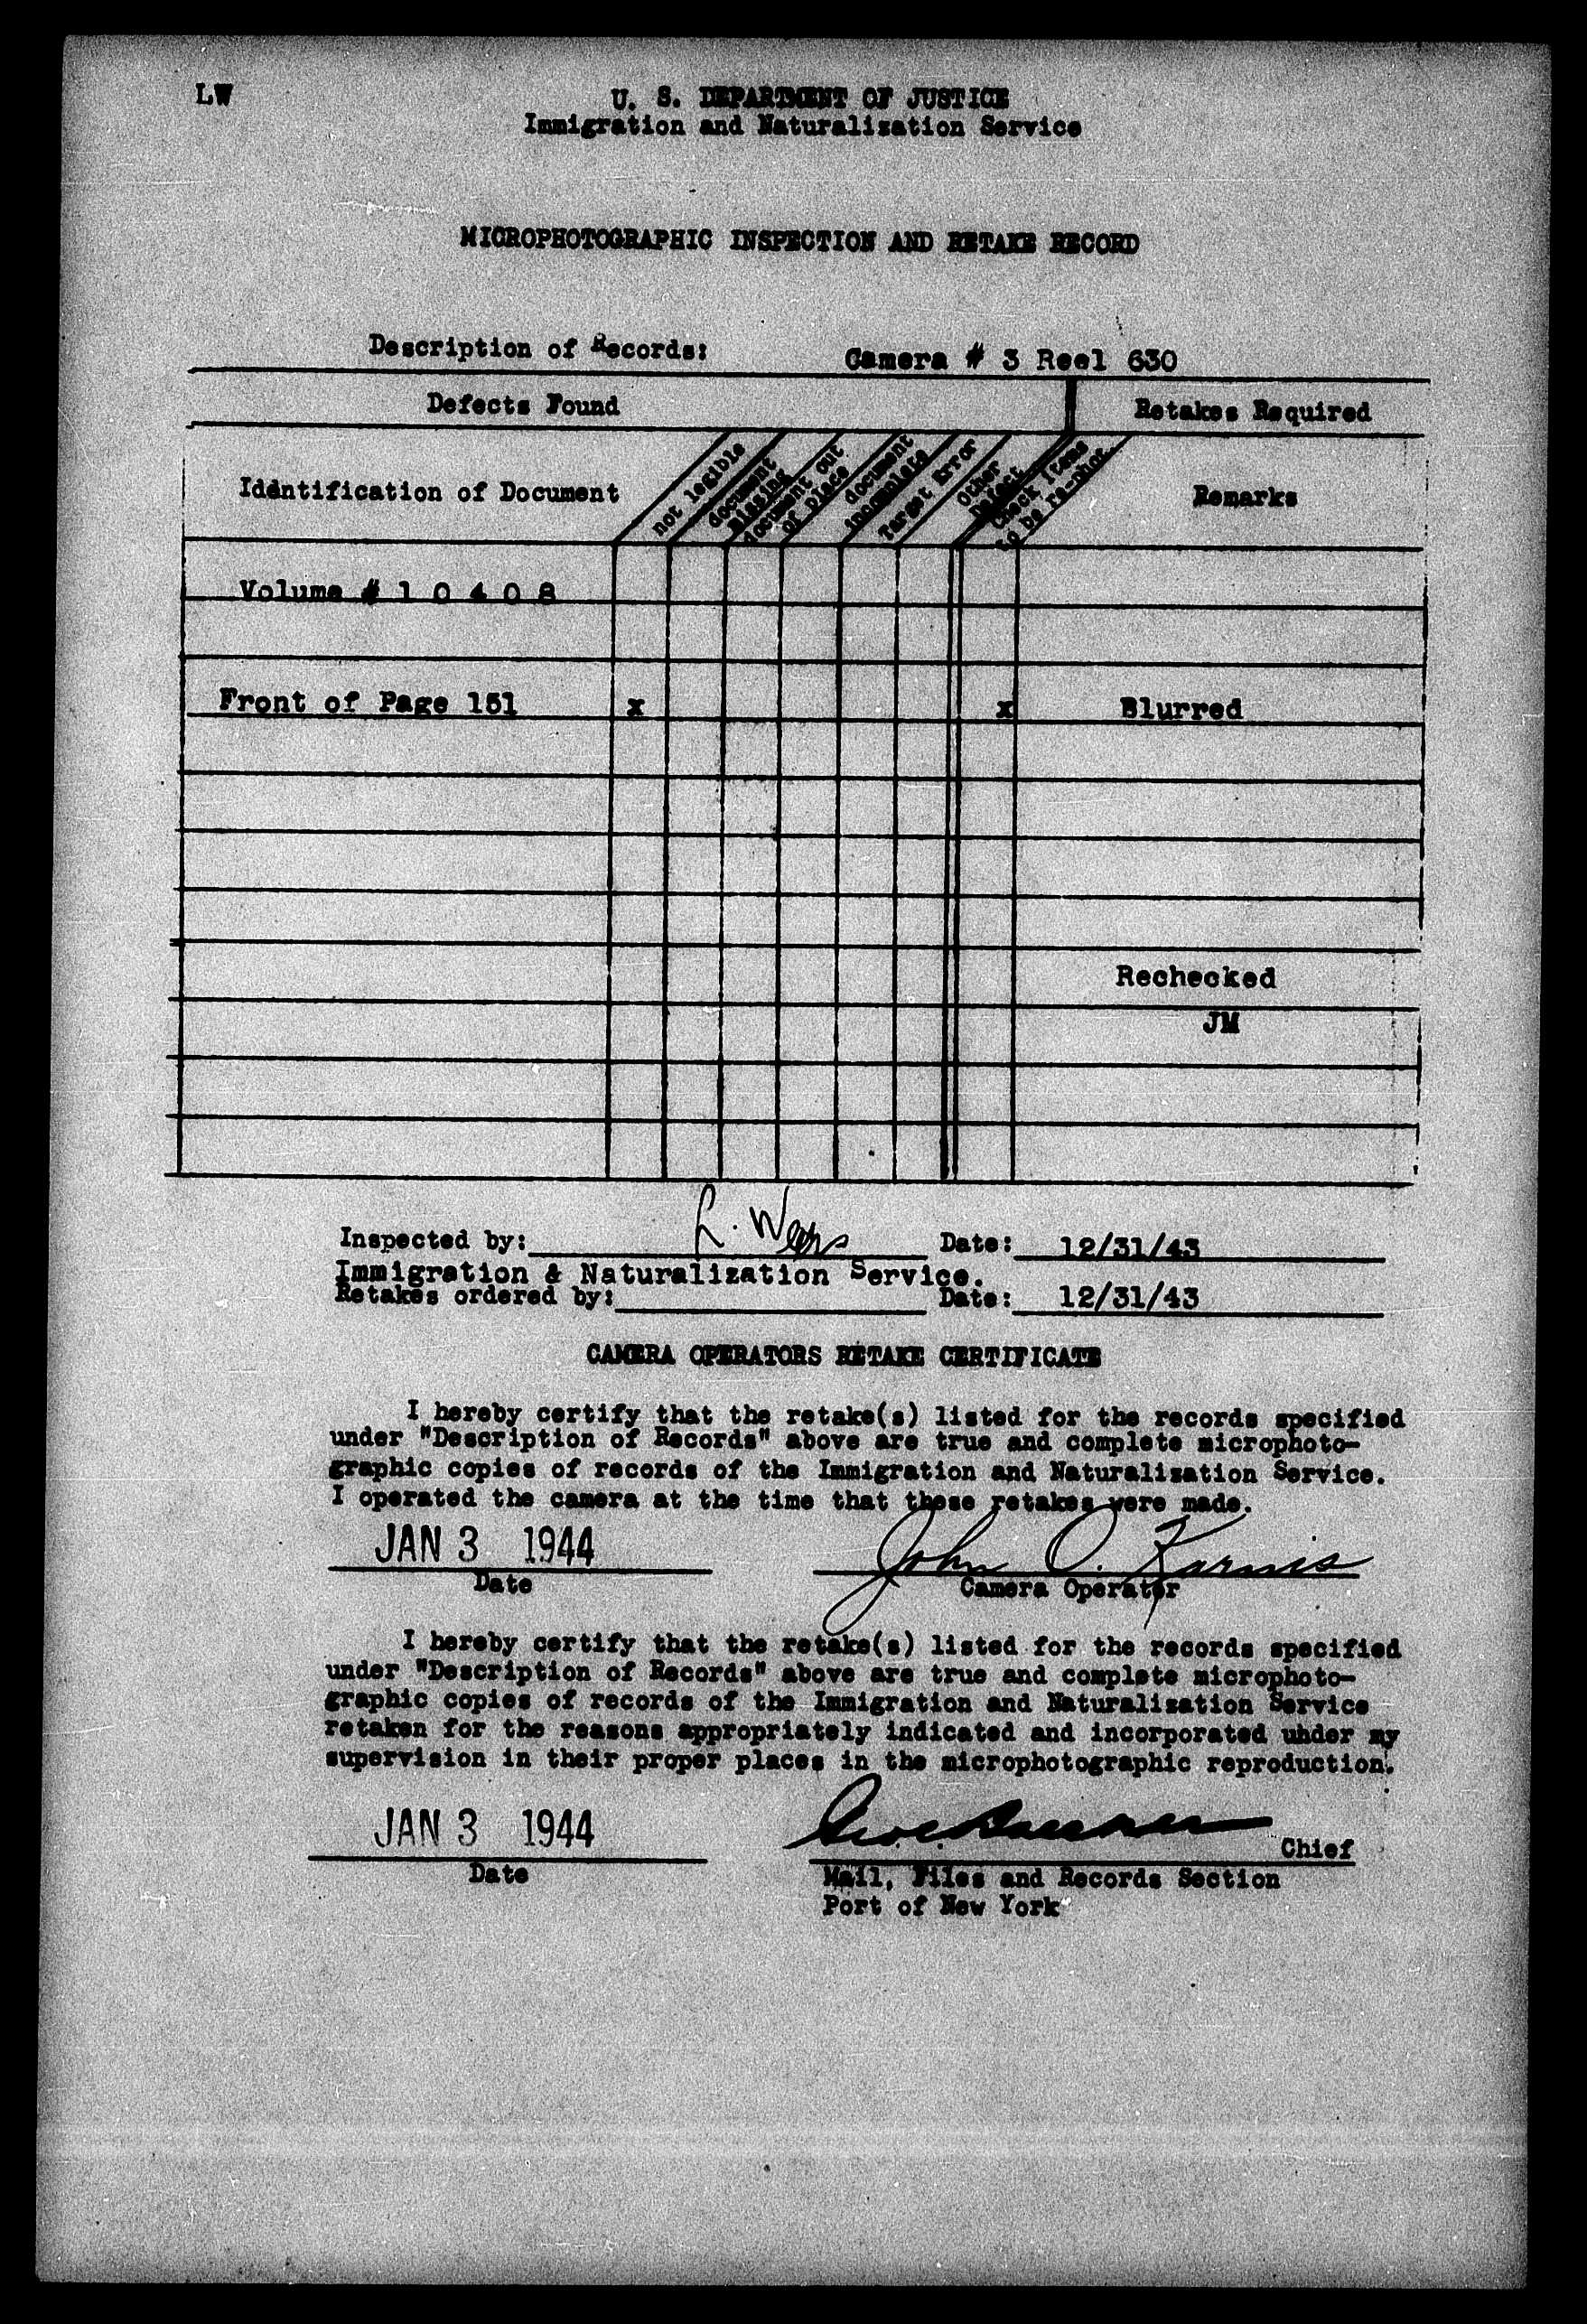 LW
U. S. DEPARTMENT OF JUSTICE
Immigration and Naturalization Service
MICROPHOTOGRAPHIC INSPECTION AND RETAKE RECORD
Description of Records: Camera # 3 Reel 630
Defects Found Retakes Required
Identification of Document
not legible
document
missing
document out
of place
document
incomplete
Target Error
Other
Defect
Check items
to be re-shot
Remarks
Volume # 1 0 4 0 8
Front of Page 151 x x Blurred
Rechecked
JM
Inspected by: L. Date: 12/31/43
Immigration & Naturalization Service.
Retakes ordered by: Date: 12/31/43
CAMERA OPERATORS RETAKE CERTIFICATE
I hereby certify that the retake(s) listed for the records specified
under "Description of Records" above are true and complete microphoto-
graphic copies of records of the Immigration and Naturalization Service.
I operated the camera at the time that these retakes were made.
JAN 3 1944 John O.
Date Camera Operator
I hereby certify that the retake(s) listed for the records specified
under "Description of Records" above are true and complete microphoto-
graphic copies of records of the Immigration and Naturalization Service
retaken for the reasons appropriately indicated and incorporated uhder my
supervision in their proper places in the microphotographic reproduction.
JAN 3 1944 Chief
Date Mail, Files and Records Section
Port of New York